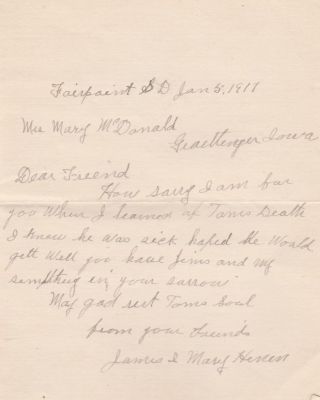 Fairpoint S D Jan 5, 1917
Mrs Mary McDonald
Graettenger Iowa
Dear Friend
How sarry I am far
you When I learned of Toms Death
I knew he was sick hoped he Would
gett Well you have Jims and my
simpthug in your sarrow
May god rest Toms Soul
from your friends
James & Mary